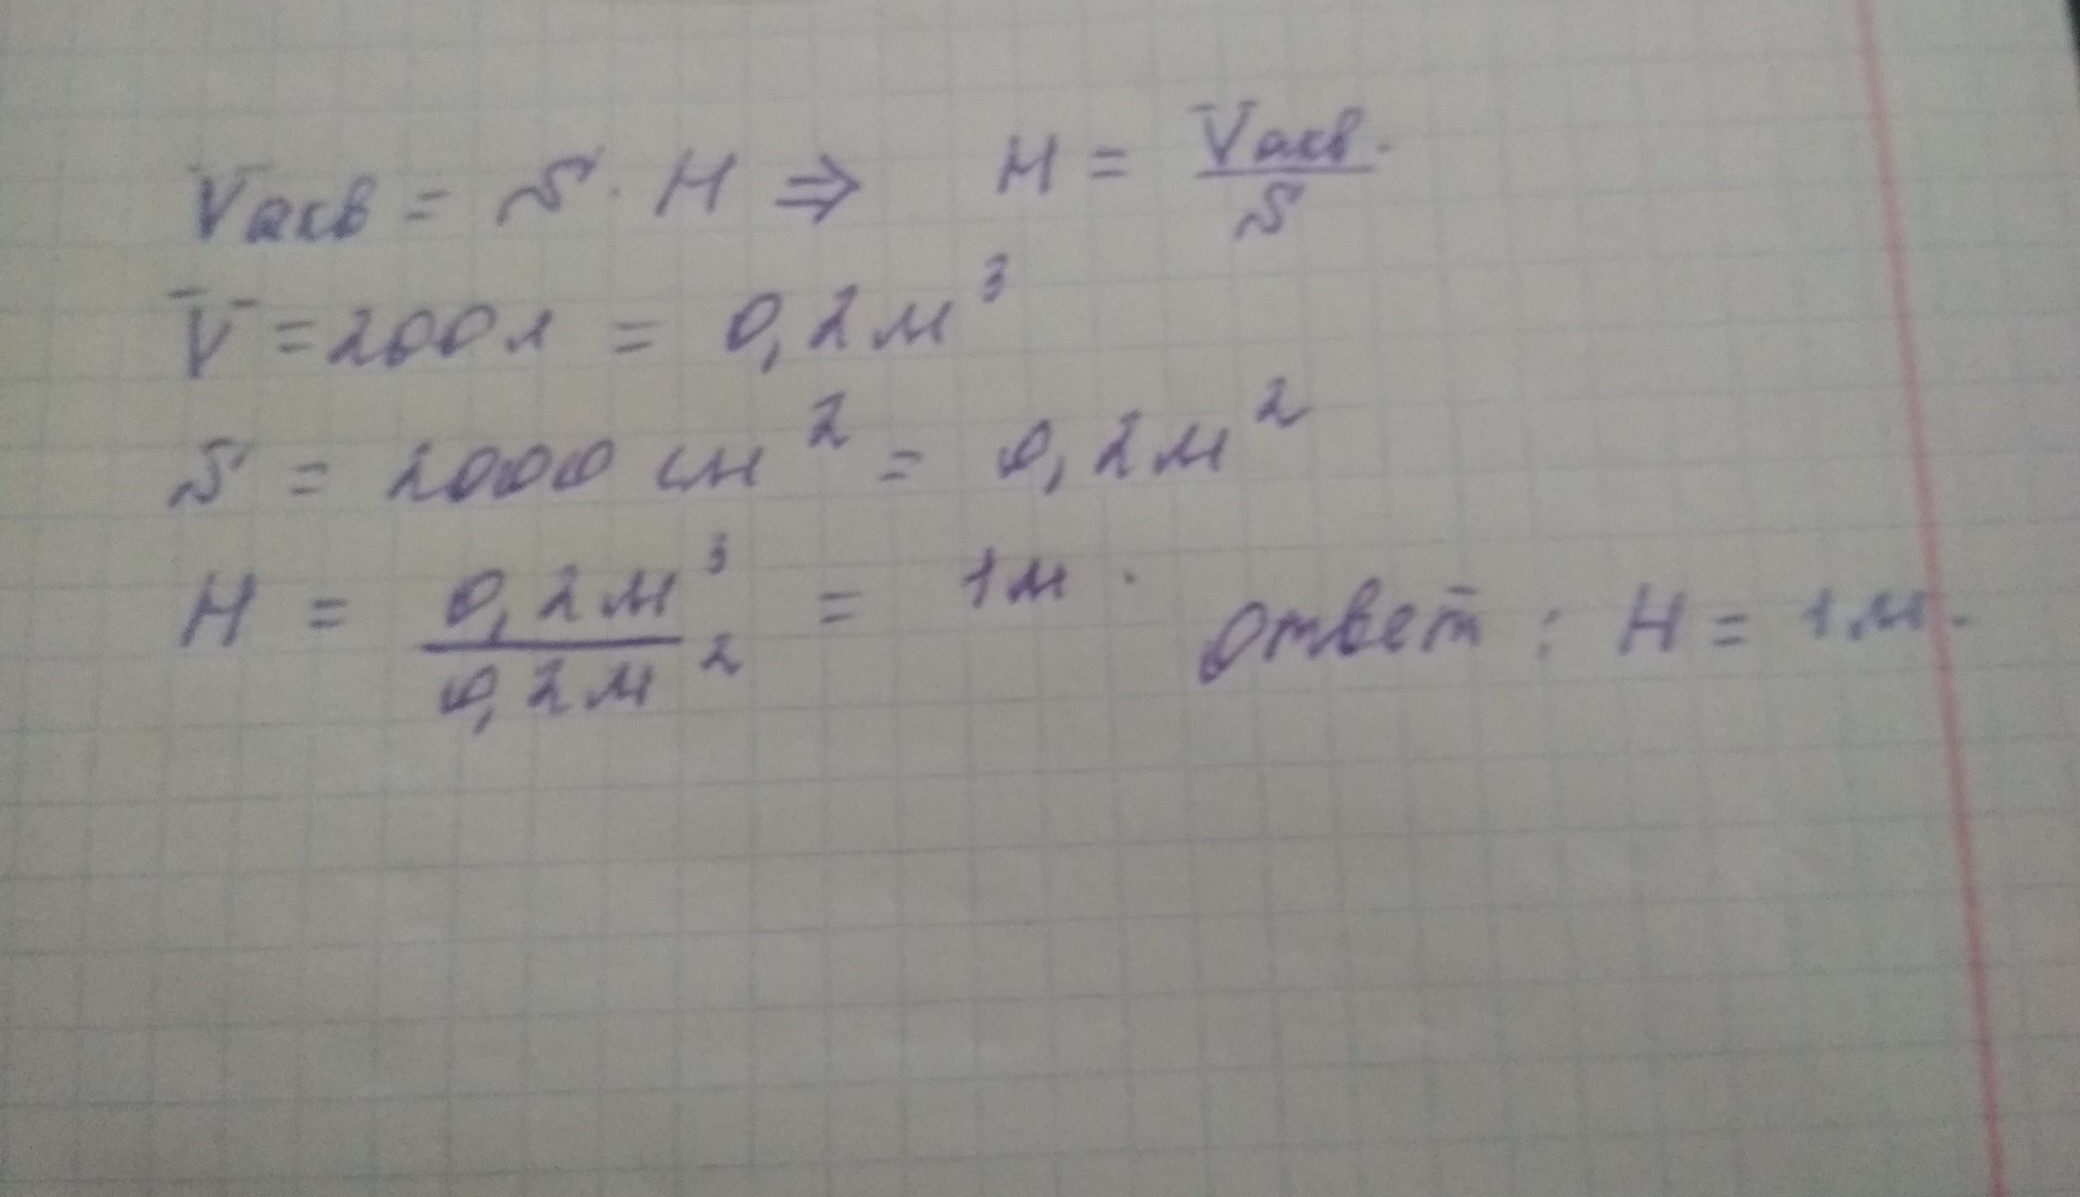 Vакв = S · H ⇒ H = Vакв. / S
V = 200 л = 0,2 м³
S = 2000 см² = 0,2 м²
H = 0,2 м³ / 0,2 м² = 1 м · Ответ : H = 1 м.